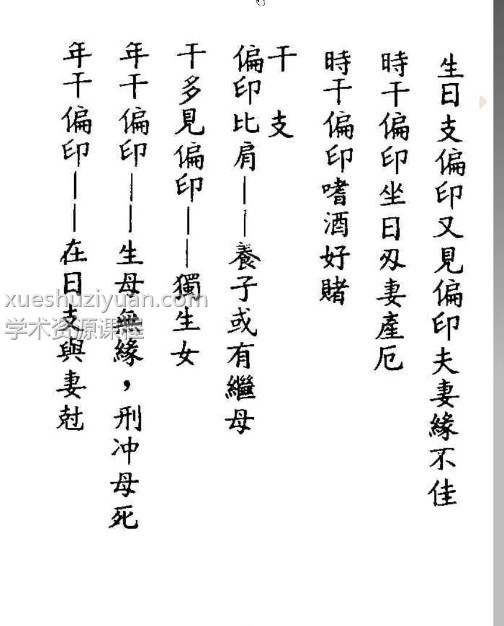 生日支偏印又見偏印夫妻緣不佳
時干偏印坐日刄妻產厄
時干偏印嗜酒好賭
干支
偏印比肩——養子或有繼母
干多見偏印——獨生女
年干偏印——生母無緣，刑冲母死
年干偏印——在日支與妻尅
xueshuziyuan.com
学术资源课程